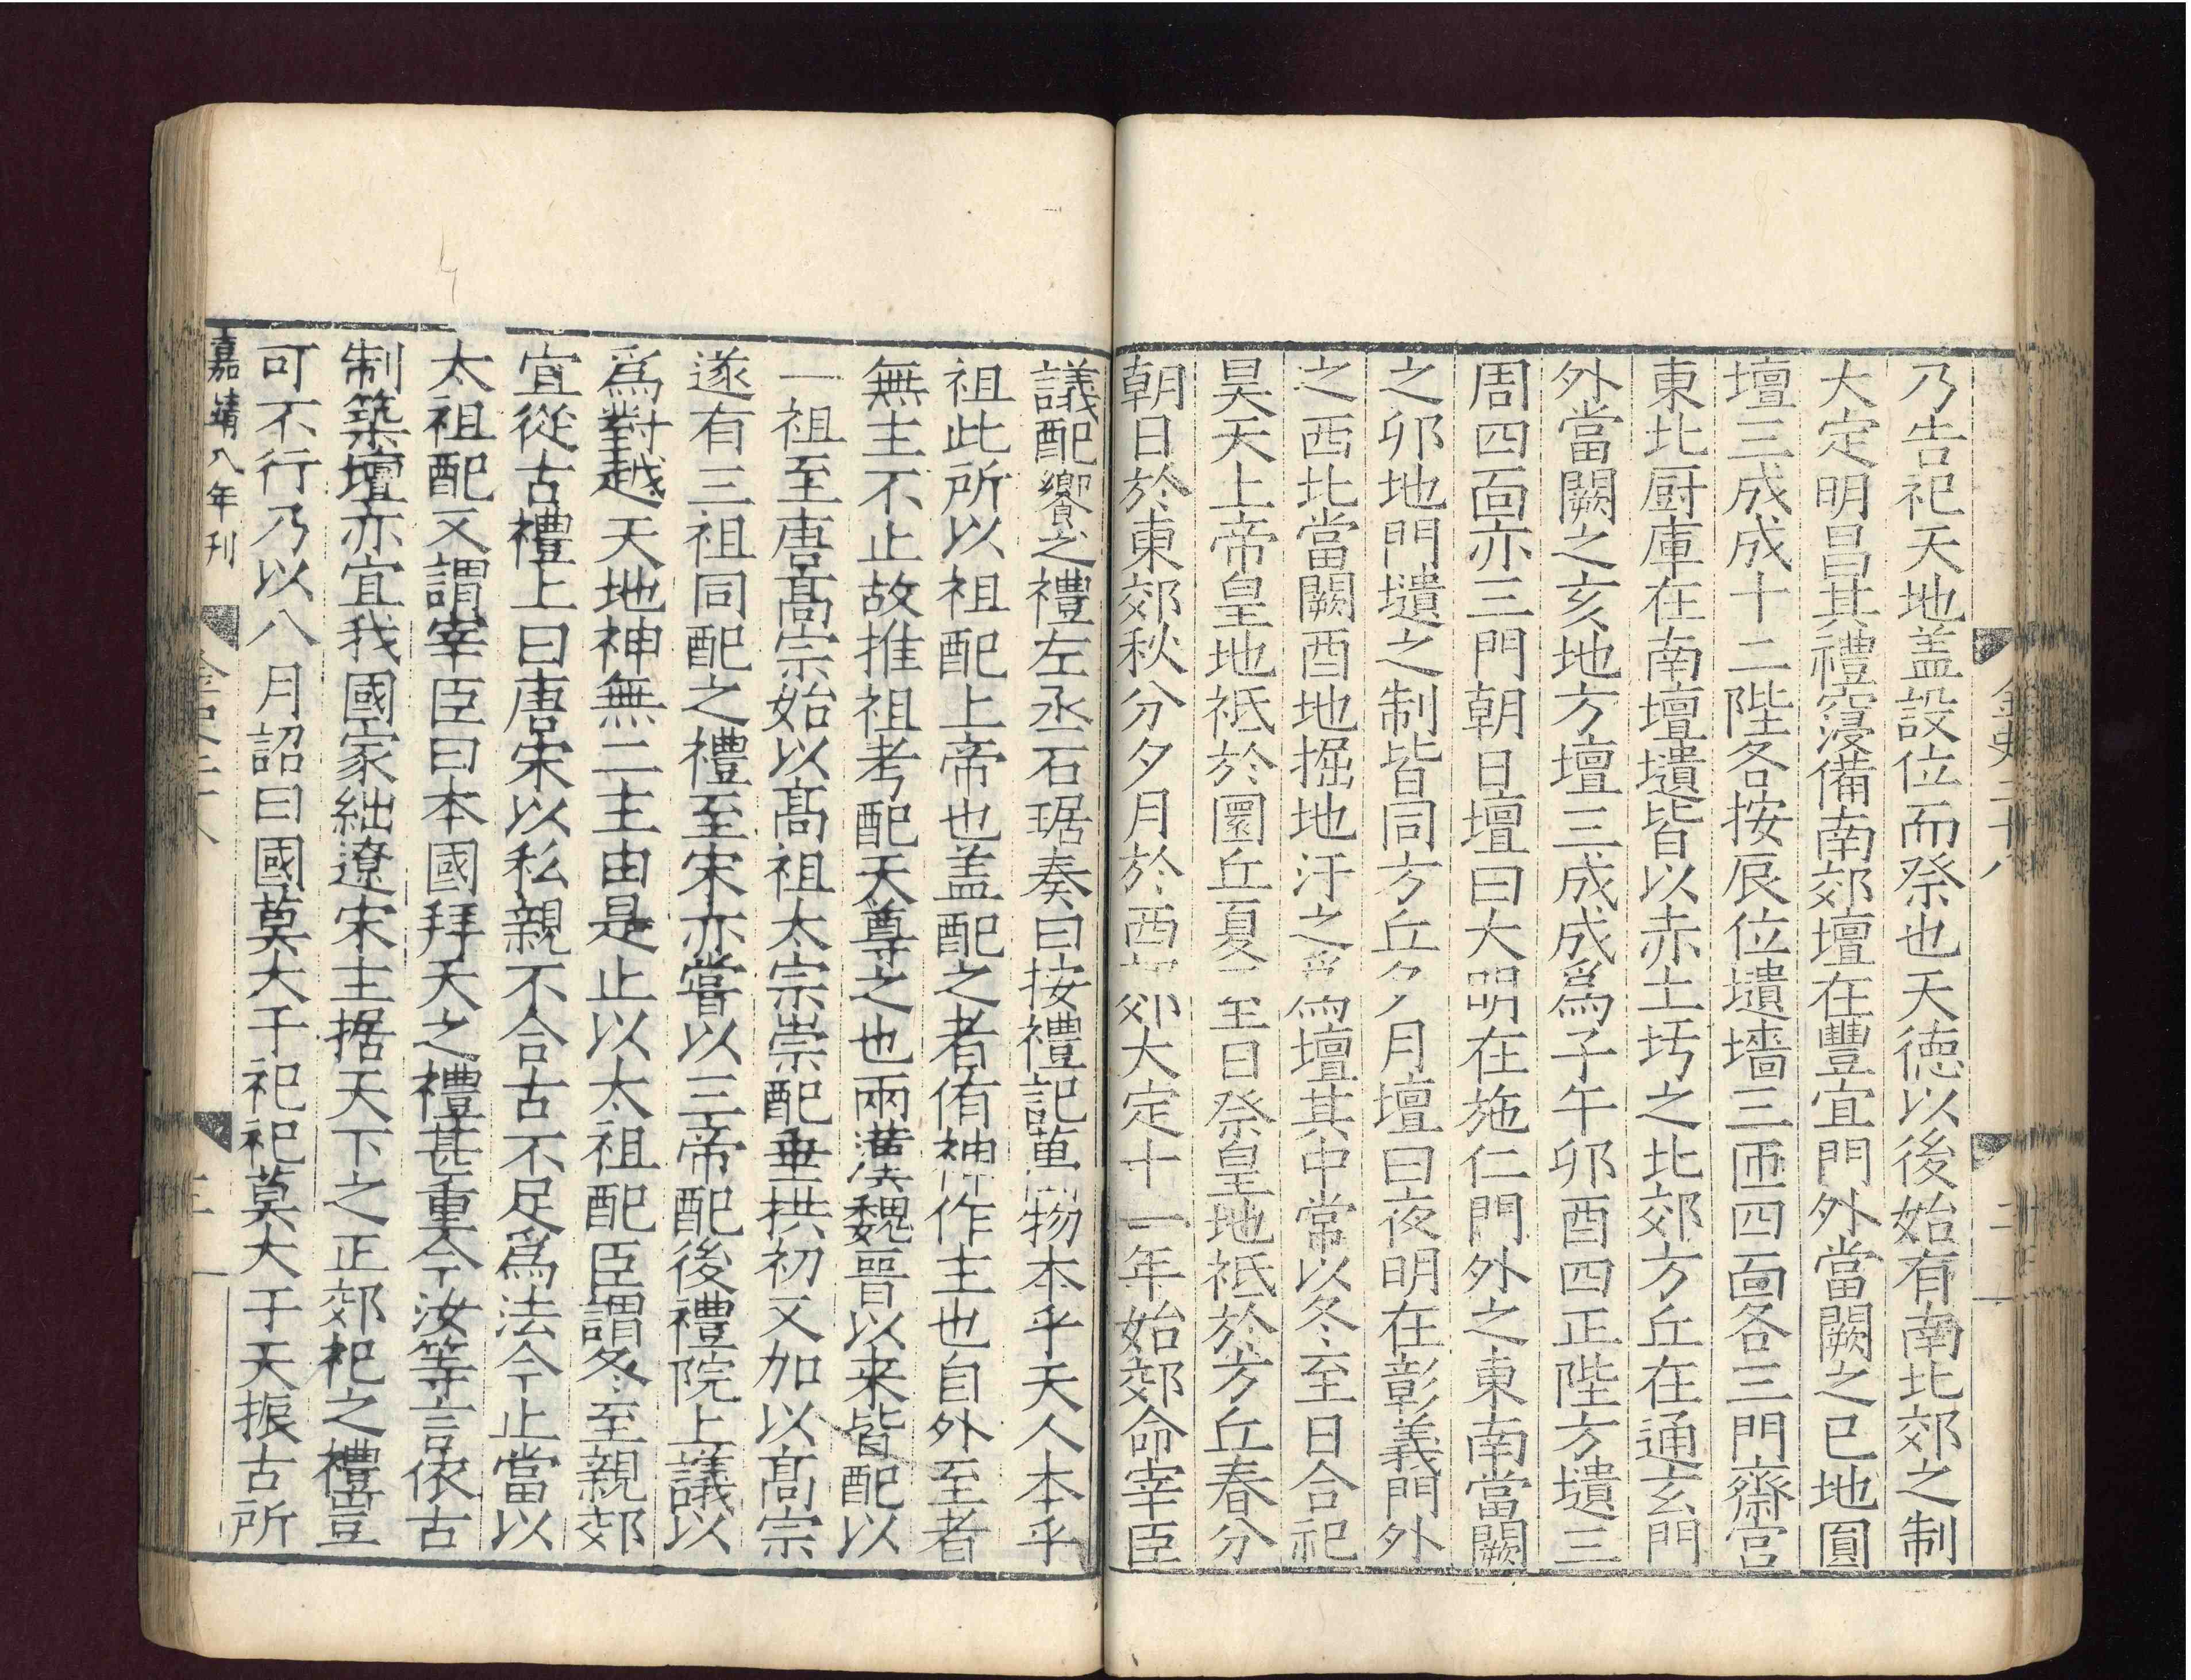 金史二十八
二
乃告祀天地盖設位而祭也天德以後始有南北郊之制
大定明昌其禮寖備南郊壇在豐宜門外當闕之巳地圓
壇三成成十二陛各按辰位壝墻三匝四面各三門齋宮
東北厨庫在南壇壝皆以赤土圬之北郊方丘在通玄門
外當闕之亥地方壇三成成爲子午卯酉四正陛方壝三
周四面亦三門朝日壇曰大明在施仁門外之東南當闕
之卯地門壝之制皆同方丘夕月壇曰夜明在彰義門外
之西北當闕酉地掘地汙之爲壇其中常以冬至日合祀
昊天上帝皇地祇於圜丘夏至日祭皇地祇於方丘春分
朝日於東郊秋分夕月於西郊大定十一年始郊命宰臣
議配饗之禮左丞石琚奏曰按禮記萬物本乎天人本乎
祖此所以祖配上帝也盖配之者侑神作主也自外至者
無主不止故推祖考配天尊之也兩漢魏晉以来皆配以
一祖至唐髙宗始以髙祖太宗崇配垂拱初又加以髙宗
遂有三祖同配之禮至宋亦嘗以三帝配後禮院上議以
爲對越天地神無二主由是止以太祖配臣謂冬至親郊
宜從古禮上曰唐宋以私親不合古不足爲法今止當以
太祖配又謂宰臣曰本國拜天之禮甚重今汝等言依古
制築壇亦宜我國家絀遼宋主据天下之正郊祀之禮豈
可不行乃以八月詔曰國莫大于祀祀莫大于天振古所
嘉靖八年刊